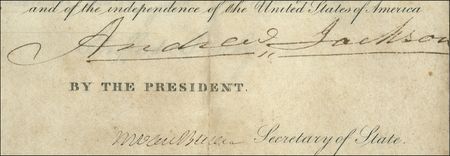 and of the independence of the United States of America
Andrew Jackson
BY THE PRESIDENT.
M Van Buren Secretary of State.